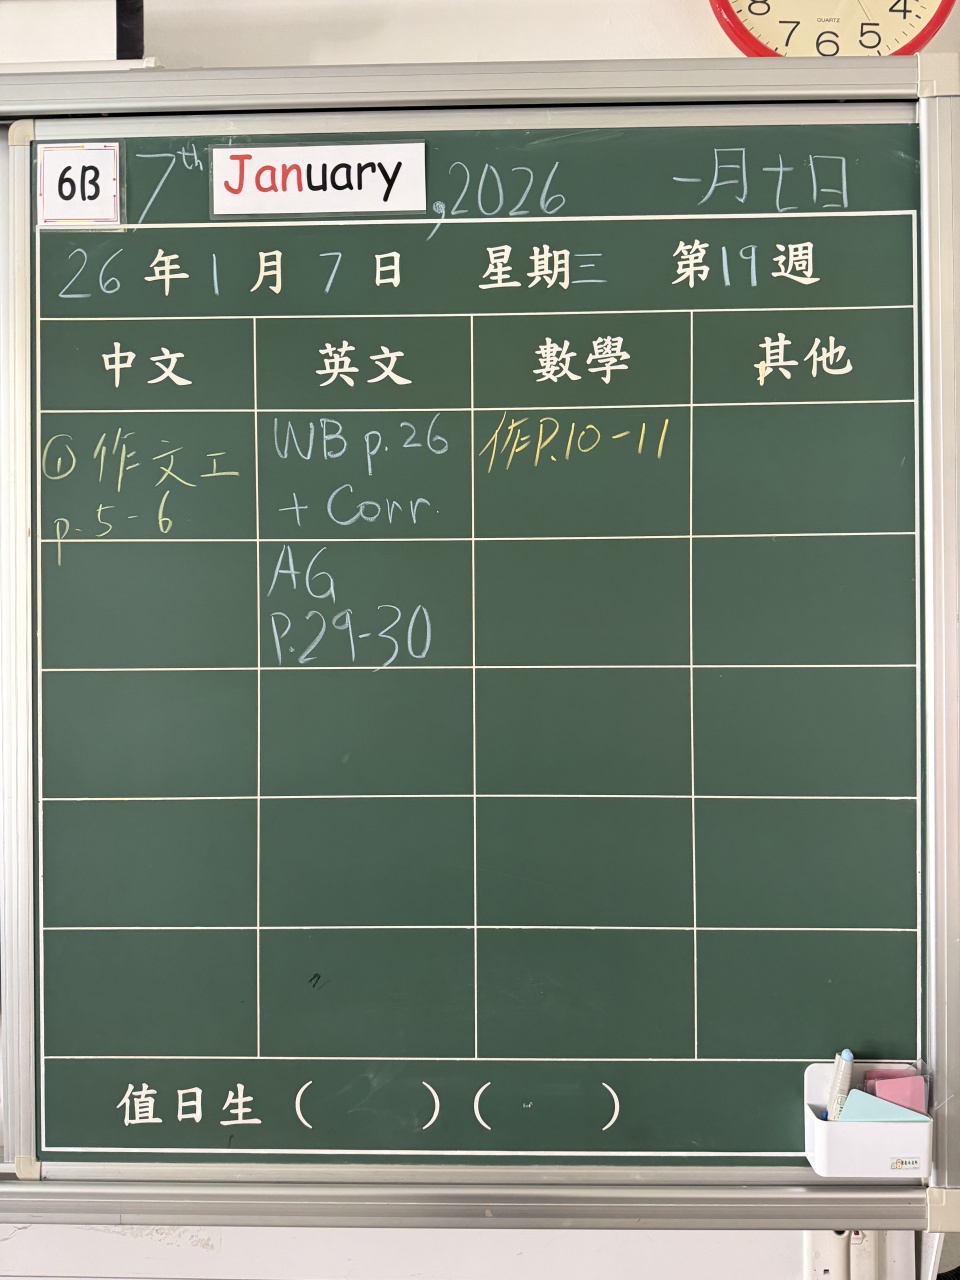 8 7 6 5 4
QUARTZ
6B 7th January, 2026 一月七日
26年1月7日 星期三 第19週
中文 英文 數學 其他
① 作文工
p.5-6
WB p.26
+ Corr.
作P.10-11
AG
P.29-30
值日生 ( ) ( )